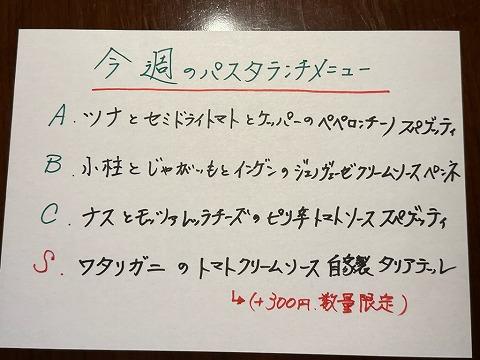 今週のパスタランチメニュー
A. ツナとセミドライトマトとケッパーのペペロンチーノ スパゲッティ
B. 小柱とじゃがいもとインゲンのジェノヴェーゼクリームソース ペンネ
C. ナスとモッツァレッラチーズのピリ辛トマトソース スパゲッティ
S. ワタリガニのトマトクリームソース 自家製 タリアテッレ
↳(+300円、数量限定)